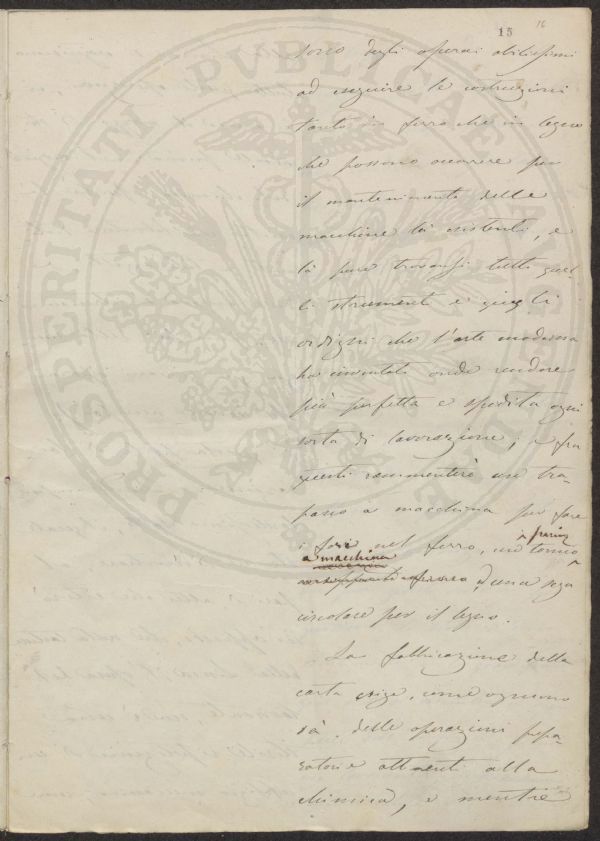 15 16
sono degli operai abilissimi
ad eseguire le costruzioni
tanto in ferro che in legno
che possono occorrere per
il mantenimento delle
macchine là esistenti, e
là pure trovansi tutti quel-
li strumenti e quegli
ordigni che l'arte moderna
ha inventati onde rendere
più perfetta e spedita ogni
sorta di lavorazione; e fra
questi rammenterò un tra-
pano a macchina per fare
i fori nel ferro, un tornio
a macchina
ed una sega
circolare per il legno.
La fabbricazione della
carta esige, come ognuno
sà, delle operazioni prepa-
ratorie attinenti alla
chimica, e mentre
PROSPERITATI PUBLICAE AUGENDAE